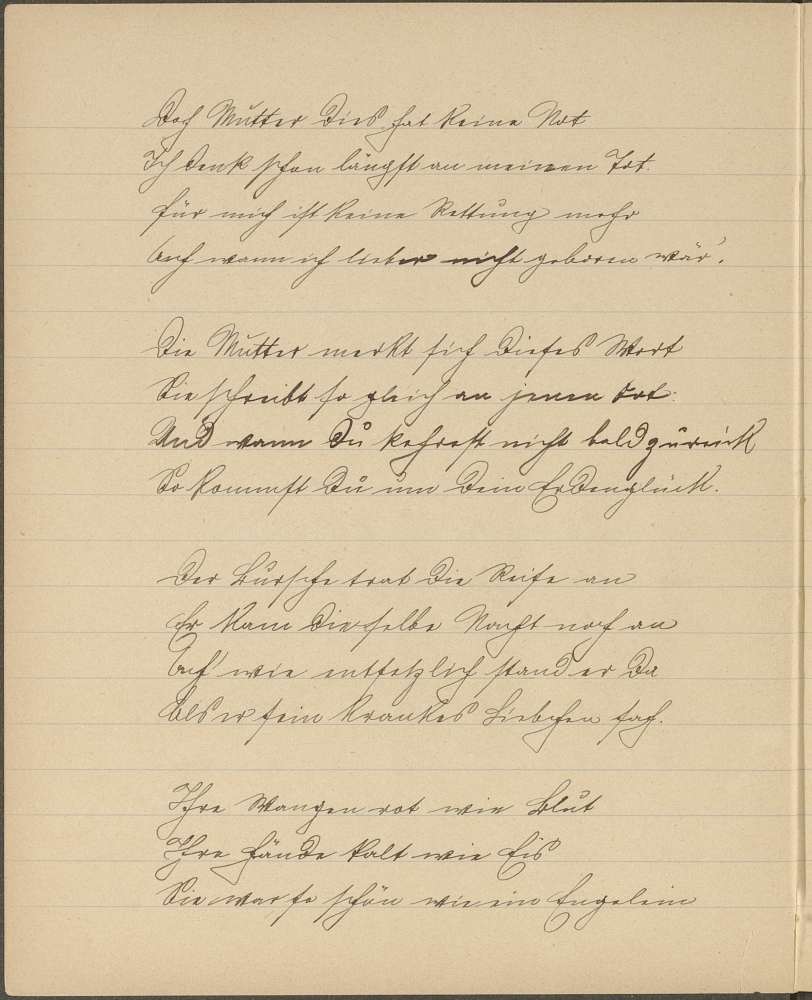 Doch Mutter dies hat keine Not
Ich denk schon längst an meinen Tot.
für mich ist keine Rettung mehr
Ach wann ich lieber nicht geboren wär'.
Die Mutter merkt sich dieses Wort
Sie schreibt so gleich an jenen Ort:
Und wann Du kehrest nicht bald zurück
So kommst Du um Dein Erdenglück.
Der Bursche trat die Reise an
Er kam dieselbe Nacht noch an
Ach! wie entsetzlich stand er da
Als er sein krankes Liebchen sah.
Ihre Wangen rot wie Blut
Ihre Hände kalt wie Eis
Sie war so schön wie ein Engelein